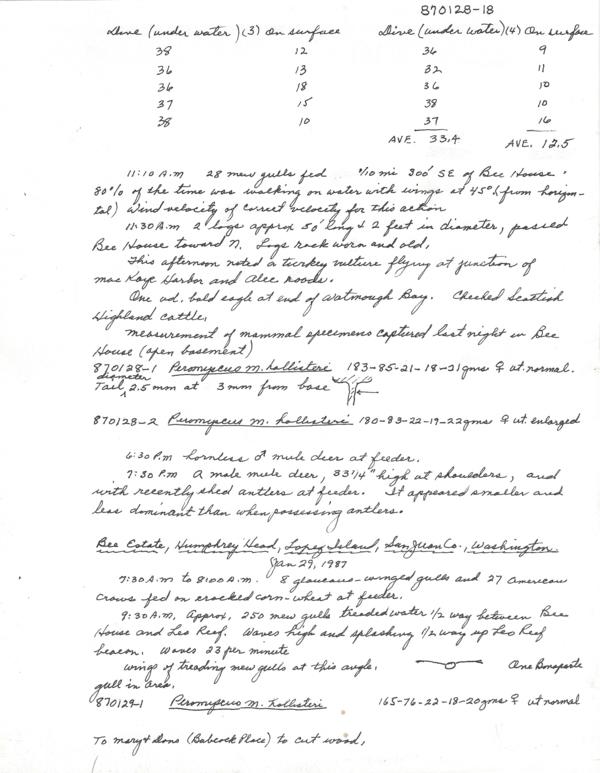 870128-18
Dive (under water) (3) On surface Dive (under water) (4) On surface
38 12 36 9
36 13 32 11
36 18 36 10
37 15 38 10
38 10 37 16
AVE. 33.4 AVE. 12.5
11:10 A.M 28 mew gulls fed 4/10 mi 300' SE of Bee House.
80% of the time was walking on water with wings at 45° (from horizon-
tal) Wind velocity of correct velocity for this action
11:30 A.M 2 logs approx 50' long & 2 feet in diameter, passed
Bee House toward N. Logs rock worn and old.
This afternoon noted a turkey vulture flying at junction of
Mac Kaye Harbor and Alec roads.
One ad. bald eagle at end of Watmough Bay. Checked Scottish
Highland cattle.
Measurement of mammal specimens captured last night in Bee
House (open basement)
870128-1 Peromyscus m. hollisteri 183-85-21-18-21gms ♀ ut. normal.
Tail diameter 2.5 mm at 3 mm from base
870128-2 Peromyscus m. hollisteri 180-83-22-19-22gms ♀ ut. enlarged
6:30 P.M hornless ♂ mule deer at feeder.
7:30 P.M A male mule deer, 33 1/4" high at shoulders, and
with recently shed antlers at feeder. It appeared smaller and
less dominant than when possessing antlers.
Bee Estate, Humphrey Head, Lopez Island, San Juan Co., Washington
Jan 29, 1987
7:30 A.M. to 8:00 A.M. 8 glaucous-winged gulls and 27 American
crows fed on cracked corn-wheat at feeder.
9:30 A.M. Approx. 250 mew gulls treaded water 1/2 way between Bee
House and Leo Reef. Waves high and splashing 1/2 way up Leo Reef
beacon. Waves 23 per minute
wings of treading mew gulls at this angle. One Bonaparte
gull in area.
870129-1 Peromyscus m. hollisteri 165-76-22-18-20gms ♀ ut normal
To Mary & Dons (Babcock Place) to cut wood.